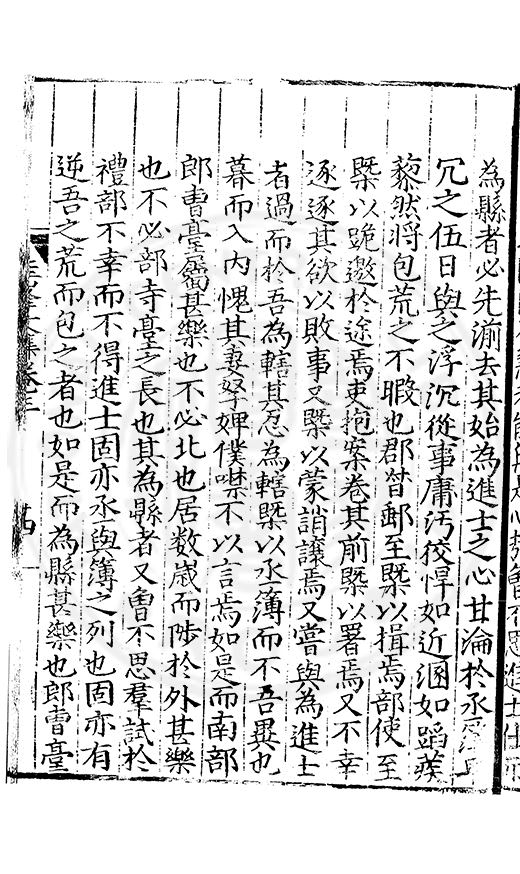 為縣者必先湔去其始為進士之心甘淪於丞簿
冗之伍日與之浮沉從事庸汚狡悍如近溷如蹈蒺
藜然將包荒之不暇也郡督郵至槩以揖焉部使至
槩以跪邀於途焉吏抱案卷其前槩以署焉又不幸
逐逐其欲以敗事又槩以蒙誚讓焉又嘗與為進士
者過而於吾為轄其忍為轄槩以丞簿而不吾異也
暮而入內愧其妻孥婢僕噤不以言焉如是而南部
郎曹臺屬甚樂也不必北也居数嵗而陟於外甚樂
也不必部寺臺之長也其為縣者又曾不思羣試於
禮部不幸而不得進士固亦丞與簿之列也固亦有
逆吾之荒而包之者也如是而為縣甚樂也郎曹臺
文集卷三